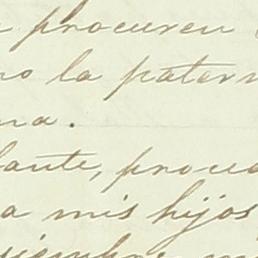 procuren
no la patern
na.
lante, proced
a mis hijos